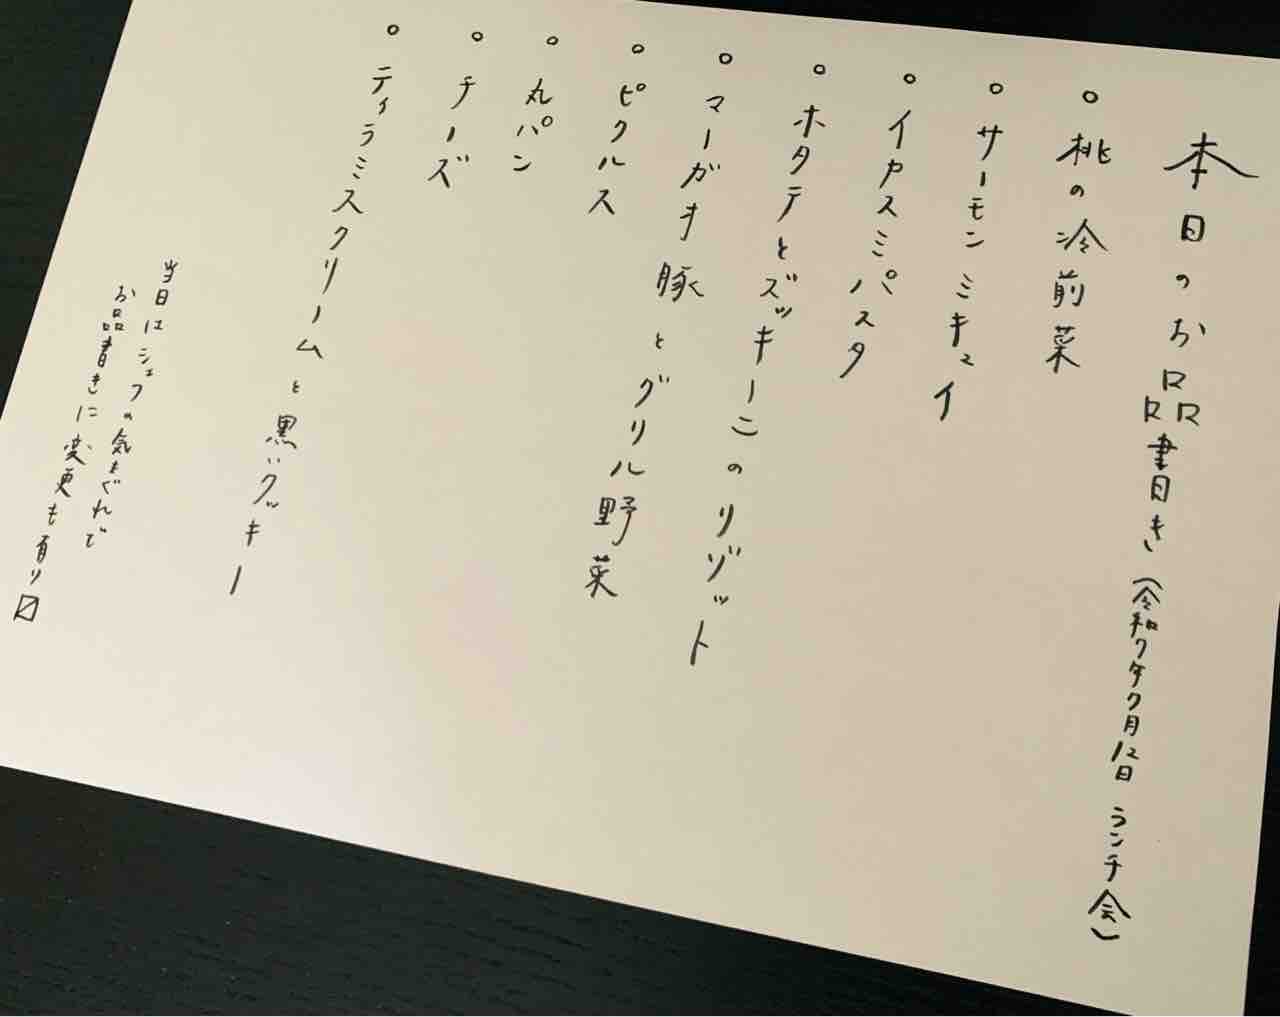 本日のお品書き（令和7年7月12日 ランチ会）
○ 桃の冷前菜
○ サーモン ミキュイ
○ イカスミパスタ
○ ホタテとズッキーニのリゾット
○ マーガオ豚とグリル野菜
○ ピクルス
○ 丸パン
○ チーズ
○ ティラミスクリームと黒いクッキー
当日はシェフの気まぐれで
お品書きに変更も有り〼